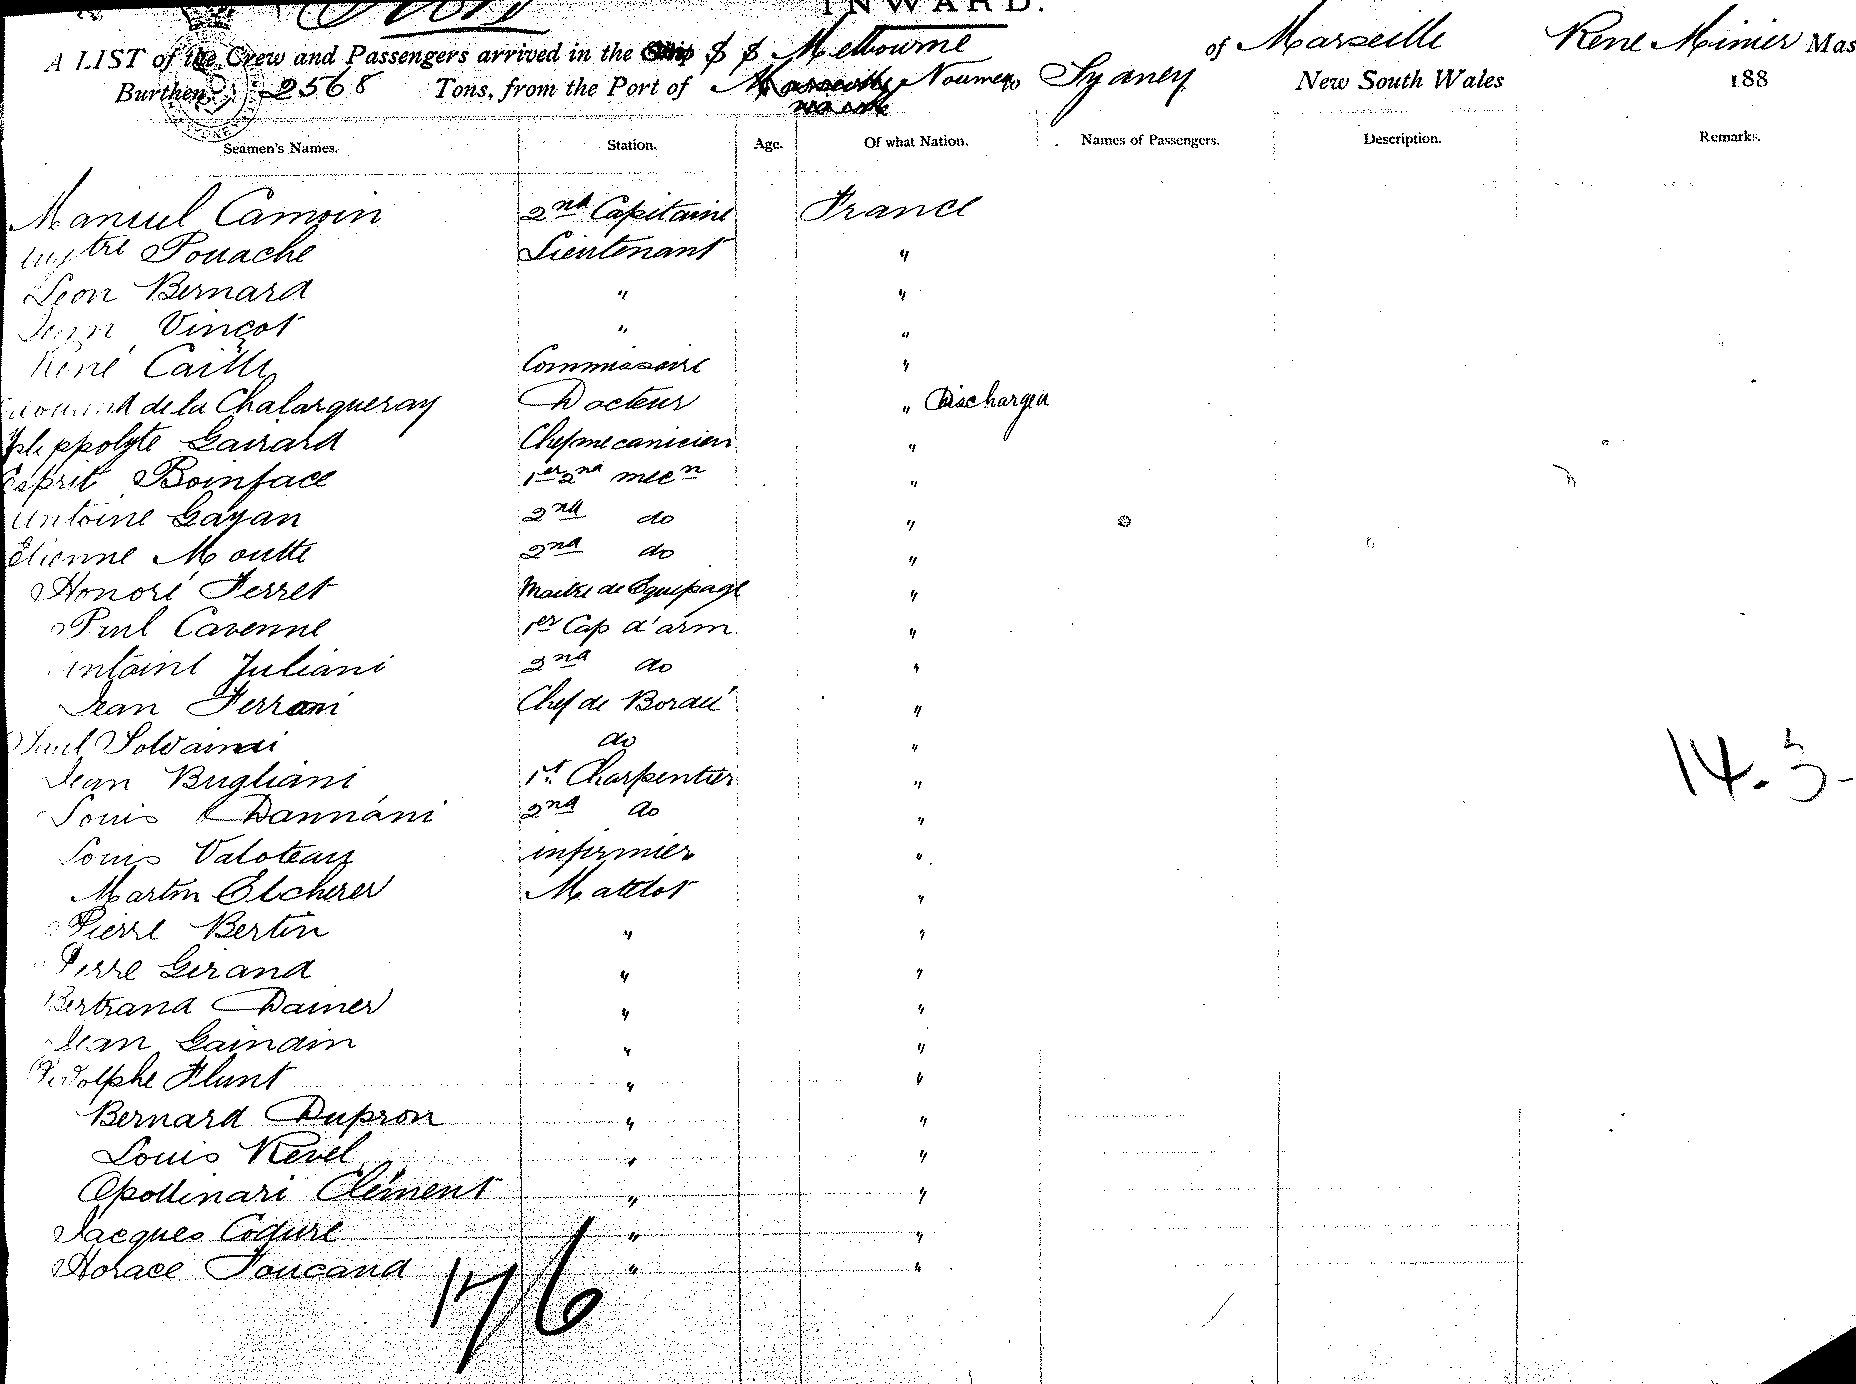 INWARD.
A LIST of the Crew and Passengers arrived in the Ship S S Melbourne of Marseille René Minier Mas
Burthen, 2568 Tons, from the Port of Noumea to Sydney New South Wales 188
Seamen's Names. Station. Age. Of what Nation. Names of Passengers. Description. Remarks.
Camoin 2nd Capitaine France
Pouache Lieutenant "
Leon Bernard " "
Jean Vincot " "
René Caille Commissaire "
de la Chalarqueray Docteur " Discharged
Gairard Chef mecanicien "
Esprit Boinface 1er 2nd mecn "
Antoine Gayan 2nd do "
Etienne Moutte 2nd do "
Honoré Ferret Maitre de Equipage "
Paul Cavenne 1er Cap d'arm "
Antoine Juliani 2nd do "
Jean Ferrani Chef de Bordée "
Paul do "
Jean Brigliani 1st Charpentier "
Louis Dannani 2nd do "
Louis Valoteau infirmier "
Martin Etcherer Matelot "
Pierre Bertin " "
Pierre Girand " "
Bertrand Dainer " "
Jean Gaindin " "
Flunt " "
Bernard Dupron " "
Louis Revel " "
Apollinari Clément " "
Jacques Codure " "
Horace Foucand " "
14.5-
176